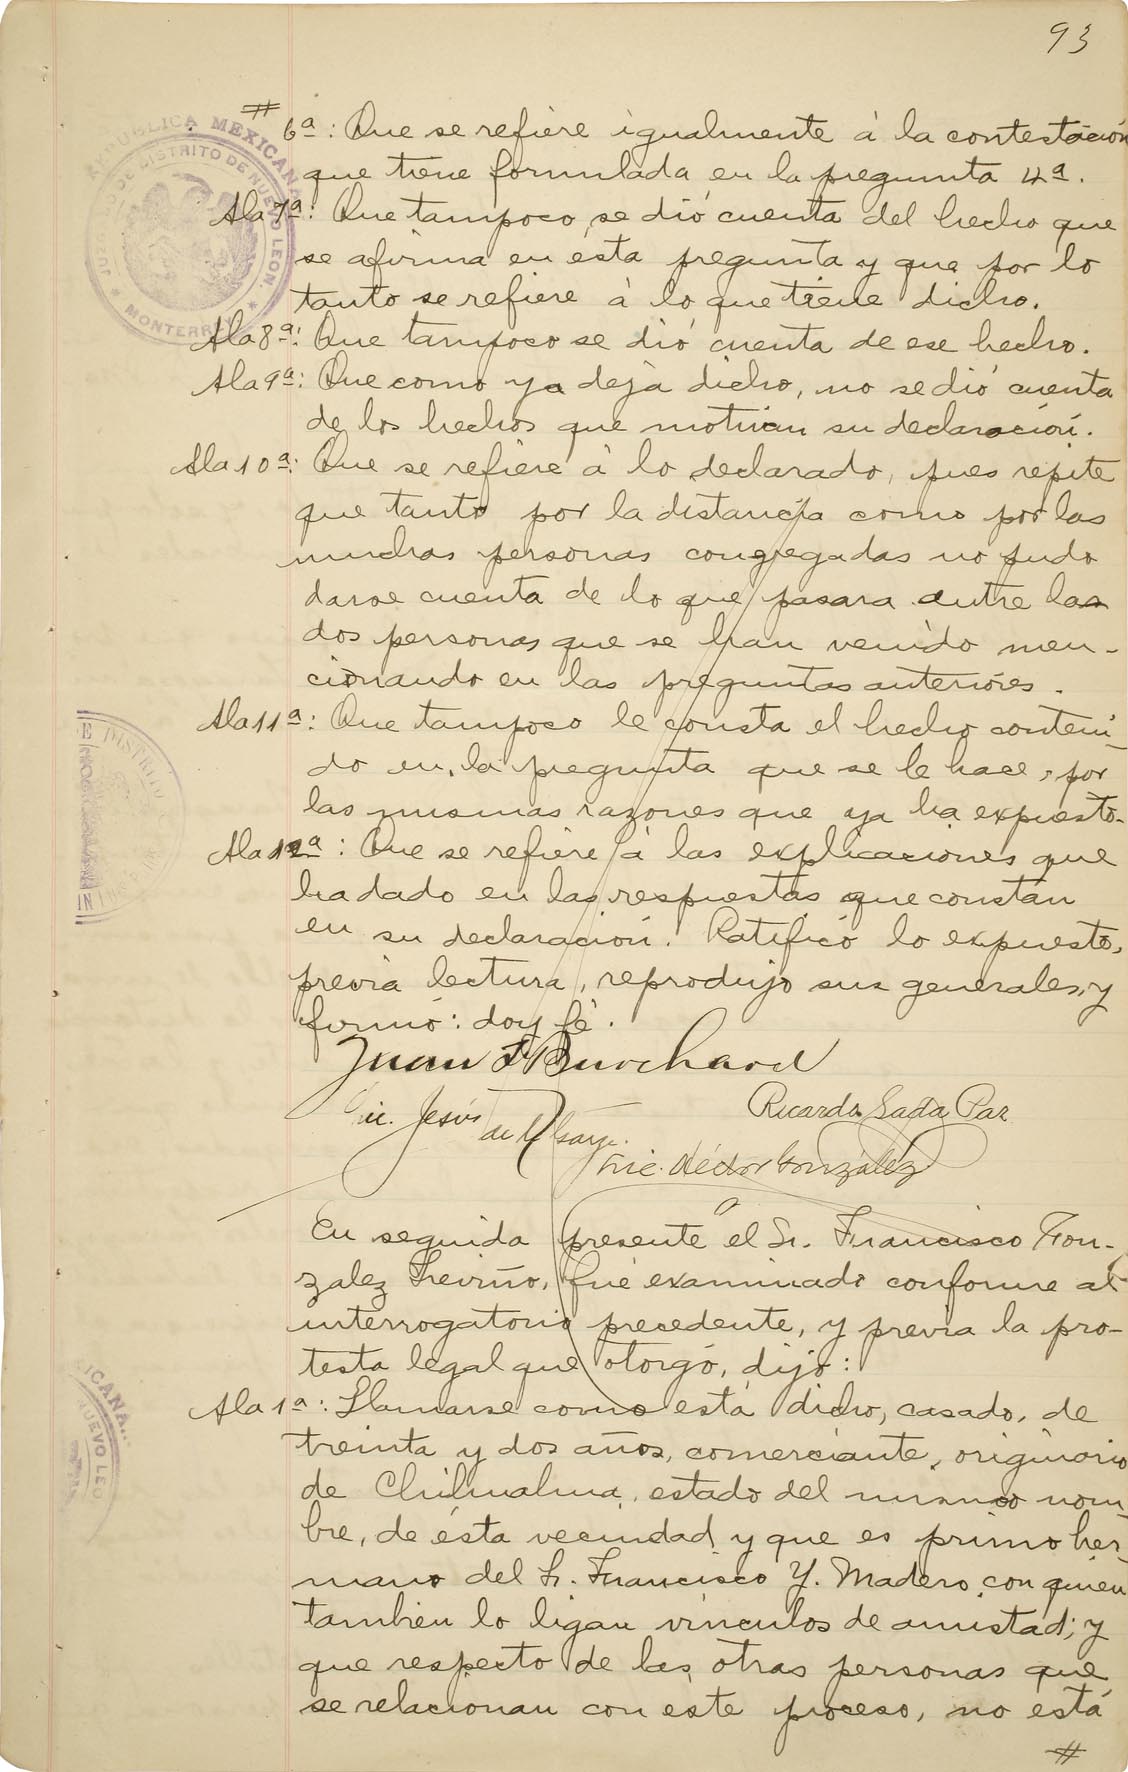 93
6ª: Que se refiere igualmente á la contestación
que tiene formulada en la pregunta 4ª.
Ala 7ª: Que tampoco se dió cuenta del hecho que
se afirma en esta pregunta y que por lo
tanto se refiere á lo que tiene dicho.
Ala 8ª: Que tampoco se dió cuenta de ese hecho.
Ala 9ª: Que como ya deja dicho, no se dió cuenta
de los hechos que motivan su declaración.
Ala 10ª: Que se refiere á lo declarado, pues repite
que tanto por la distancia como por las
muchas personas congregadas no pudo
darse cuenta de lo que pasara entre las
dos personas que se han venido men-
cionando en las preguntas anteriores.
Ala 11ª: Que tampoco le consta el hecho conteni-
do en la pregunta que se le hace, por
las mismas razones que ya ha expuesto.
Ala 12ª: Que se refiere á las explicaciones que
ha dado en las respuestas que constan
en su declaración. Ratificó lo expuesto,
previa lectura, reprodujo sus generales, y
firmó: doy fé.
Juan F Burchard
Lic. Jesús de
Ricardo Sada Paz
Lic. Héctor González
En seguida presente el Sr. Francisco Gon-
zalez Treviño, fué examinado conforme al
interrogatorio precedente, y previa la pro-
testa legal que otorgó, dijo:
Ala 1ª: Llamarse como está dicho, casado, de
treinta y dos años, comerciante, originario
de Chihuahua, estado del mismo nom-
bre, de ésta vecindad y que es primo her-
mano del Sr. Francisco Y. Madero, con quien
tambien lo ligan vínculos de amistad; y
que respecto de las otras personas que
se relacionan con este proceso, no está
REPUBLICA MEXICANA
JUZGADO DE DISTRITO DE NUEVO LEON.
* MONTERREY *
E DISTRITO
ICANA
NUEVO LEO